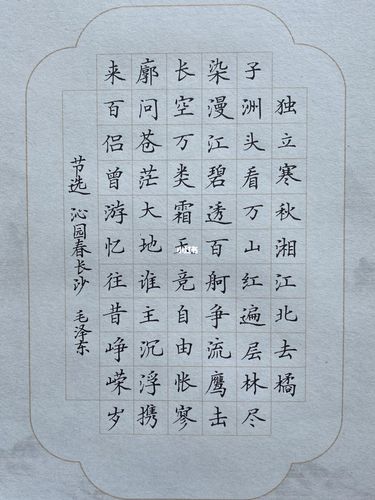 独立寒秋湘江北去橘
子洲头看万山红遍层林尽
染漫江碧透百舸争流鹰击
长空万类霜天竞自由怅寥
廓问苍茫大地谁主沉浮携
来百侣曾游忆往昔峥嵘岁
节选 沁园春长沙 毛泽东